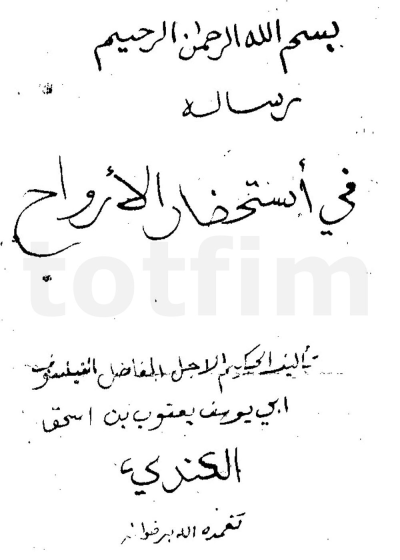 بسم الله الرحمن الرحيم
رساله
في أستحضار الأرواح
totfim
تأليف الحكيم الاجل الفاضل الفيلسوف
ابي يوسف يعقوب بن اسحق
الكندي
تغمده الله برضوانه